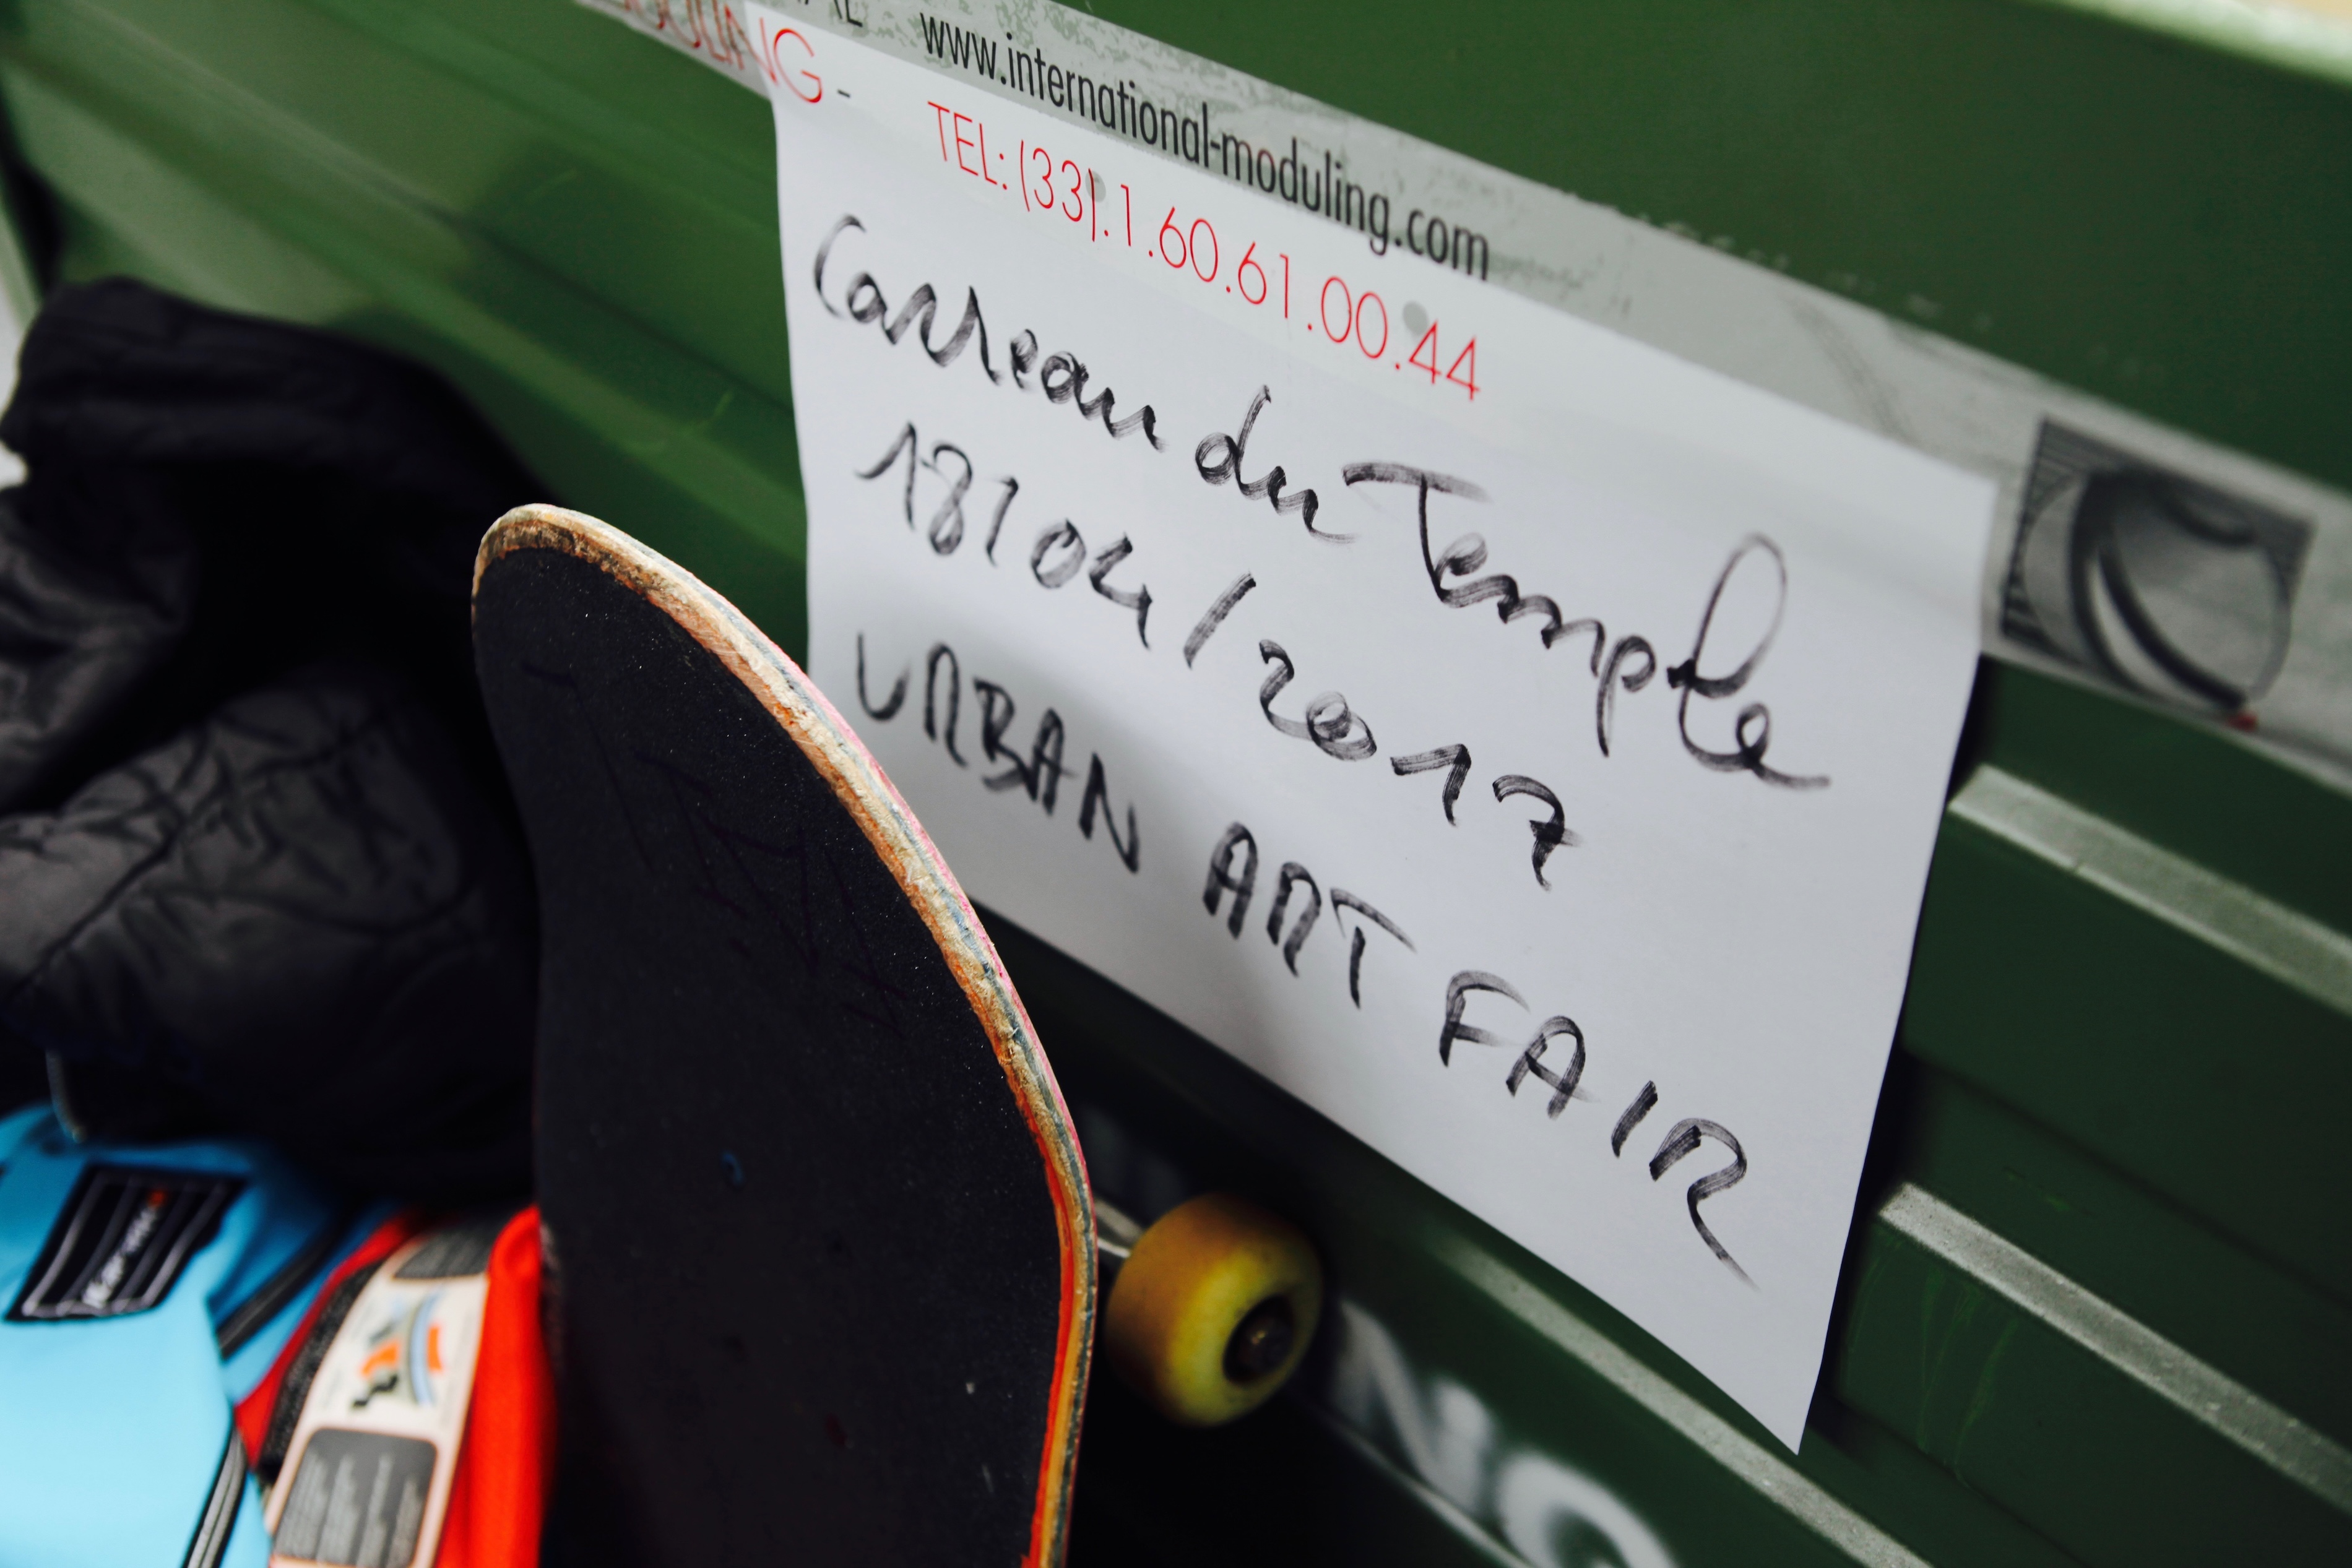 www.international-moduling.com
TEL: (33).1.60.61.00.44
Carreau du Temple
18/04/2017
URBAN ART FAIR